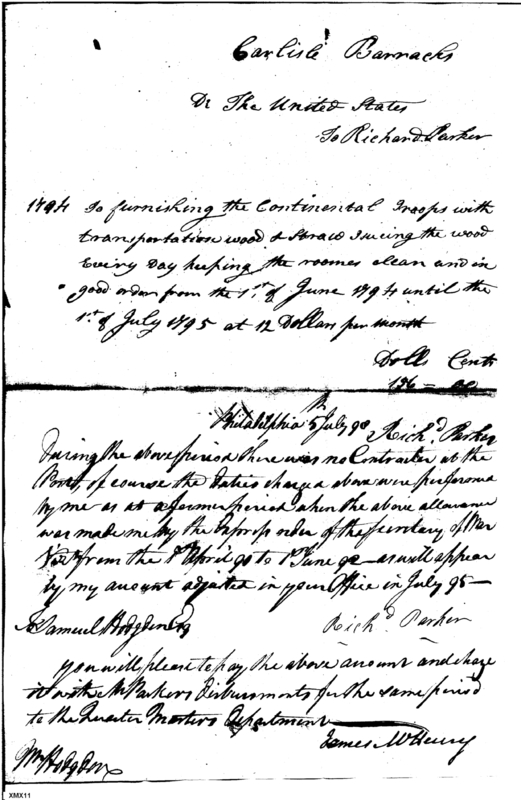 Carlisle Barracks
Dr The United States
To Richard Parker
1794 To furnishing the Continental Troops with
transportation wood & Straw Issuing the wood
Every Day keeping the roomes clean and in
good order from the 1st of June 1794 until the
1st of July 1795 at 12 Dollars per month
Dolls Cents
156 - 00
Philadelphia 5th July 98 Richd Parker
During the above period there was no Contractor at the
Post, of course the duties charged above were performed
by me as at a former period when the above allowance
was made me by the express order of the Secretary of War
from the 1st April 90 to 1st June 92 as will appear
by my account adjusted in your Office in July 95 -
To Samuel Hodgdon Esq Richd Parker
you will please to pay the above account and charge
it with Mr Parkers disbursments for the same period
to the Quarter Masters Department
James McHenry
Mr Hodgdon
XMX11